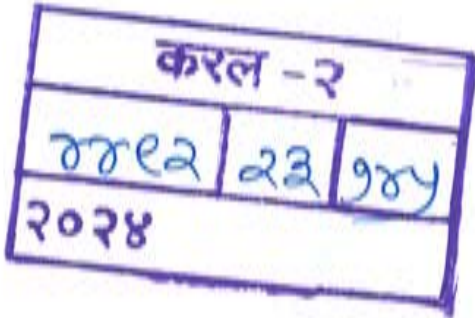 करल - २
४४९२ २३ १४५
२०२४